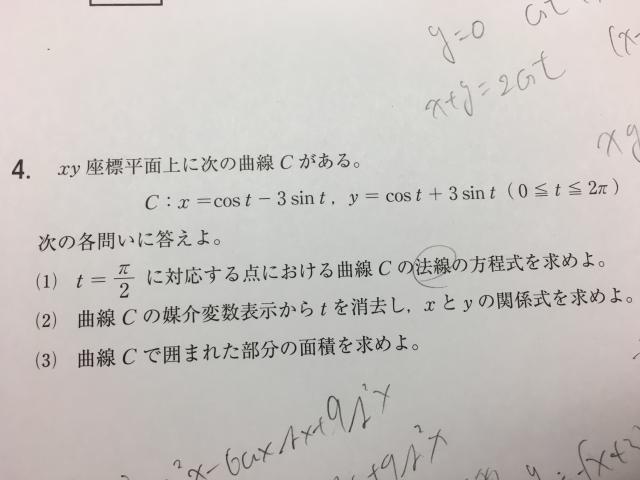 y=0
x+y=2cost
4. xy座標平面上に次の曲線Cがある。
C:x=cost-3sint, y=cost+3sint (0≦t≦2π)
次の各問いに答えよ。
(1) t=π/2 に対応する点における曲線Cの法線の方程式を求めよ。
(2) 曲線Cの媒介変数表示からtを消去し,xとyの関係式を求めよ。
(3) 曲線Cで囲まれた部分の面積を求めよ。